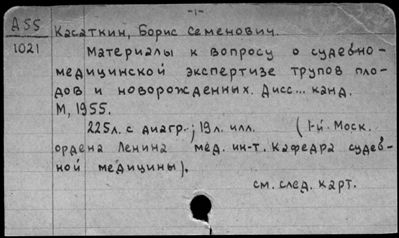 -1-
А55 Касаткин, Борис Семенович.
1021 Материалы к вопросу о судебно-
медицинской экспертизе трупов пло-
дов и новорожденных. Дисс... канд.
М, 1955.
225л. с диагр.; 19л. илл. (1-й Моск.
ордена Ленина мед. ин-т. Кафедра судеб-
ной медицины).
см. след. карт.